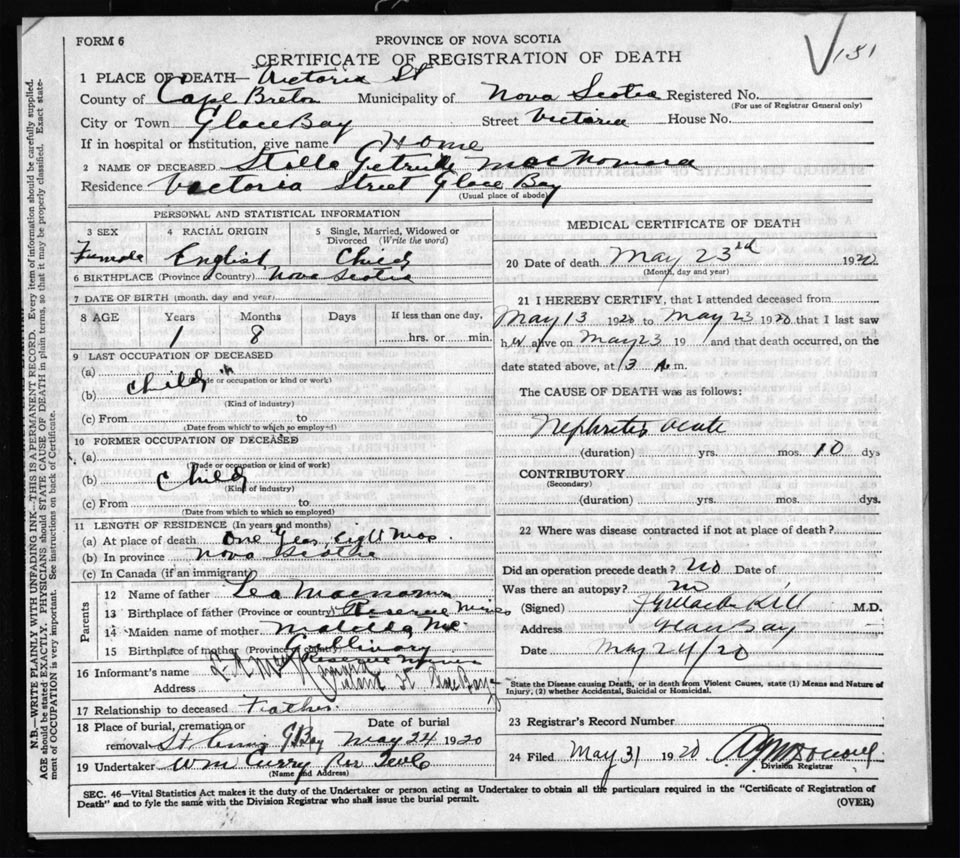 FORM 6
PROVINCE OF NOVA SCOTIA
CERTIFICATE OF REGISTRATION OF DEATH
151
1 PLACE OF DEATH— Victoria St
County of Cape Breton Municipality of Nova Scotia Registered No.
(For use of Registrar General only)
City or Town Glace Bay Street Victoria House No.
If in hospital or institution, give name Home
2 NAME OF DECEASED Stella Getrude MacNamara
Residence Victoria Street Glace Bay
(Usual place of abode)
PERSONAL AND STATISTICAL INFORMATION
3 SEX 4 RACIAL ORIGIN 5 Single, Married, Widowed or Divorced (Write the word)
Female English Child
6 BIRTHPLACE (Province or Country) Nova Scotia
7 DATE OF BIRTH (month, day and year)
8 AGE Years Months Days If less than one day,
1 8 hrs. or min.
9 LAST OCCUPATION OF DECEASED
(a)
(Trade or occupation or kind or work)
(b) Child
(Kind of industry)
(c) From to
(Date from which to which so employed)
10 FORMER OCCUPATION OF DECEASED
(a)
(Trade or occupation or kind of work)
(b) Child
(Kind of industry)
(c) From to
(Date from which to which so employed)
11 LENGTH OF RESIDENCE (In years and months)
(a) At place of death One Year Eight Mos.
(b) In province Nova Scotia
(c) In Canada (if an immigrant)
Parents
12 Name of father Leo
13 Birthplace of father (Province or country) Reserve Mines
14 Maiden name of mother Matilda Mc
15 Birthplace of mother (Province or country) Reserve Mines
16 Informant's Name
Address St Glace Bay
17 Relationship to deceased Father
18 Place of burial, cremation or removal Date of burial
St. G. Bay May 24 1920
19 Undertaker Wm Curry
(Name and Address)
MEDICAL CERTIFICATE OF DEATH
20 Date of death May 23rd 1920
(Month, day and year)
21 I HEREBY CERTIFY, that I attended deceased from
May 13 1920 to May 23 1920 that I last saw
her alive on May 23 19 and that death occurred, on the
date stated above, at 3 A.m.
The CAUSE OF DEATH was as follows:
Nephretis Acute
(duration) yrs. mos. 10 dys
CONTRIBUTORY
(Secondary)
(duration) yrs. mos. dys.
22 Where was disease contracted if not at place of death?
Did an operation precede death? No Date of
Was there an autopsy? No
(Signed) M.D.
Address Glace Bay
Date May 24/20
State the Disease causing Death, or in death from Violent Causes, state (1) Means and Nature of Injury, (2) whether Accidental, Suicidal or Homicidal.
23 Registrar's Record Number
24 Filed May 31 1920
Division Registrar
SEC. 46—Vital Statistics Act makes it the duty of the Undertaker or person acting as Undertaker to obtain all the particulars required in the "Certificate of Registration of
Death" and to fyle the same with the Division Registrar who shall issue the burial permit. (OVER)
N.B.—WRITE PLAINLY WITH UNFADING INK—THIS IS A PERMANENT RECORD. Every item of information should be carefully supplied.
AGE should be stated EXACTLY. PHYSICIANS should STATE CAUSE OF DEATH in plain terms, so that it may be properly classified. Exact state-
ment of OCCUPATION is very important. See instructions on back of Certificate.